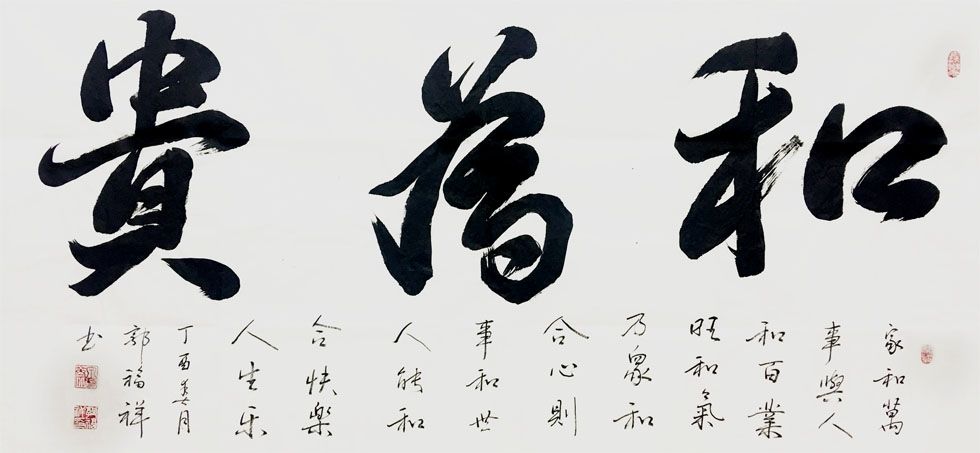 和為貴
家和萬
事興人
和百業
旺和氣
乃眾和
合心則
事和世
人能和
合快樂
人生乐
丁酉春月
郭福祥
书